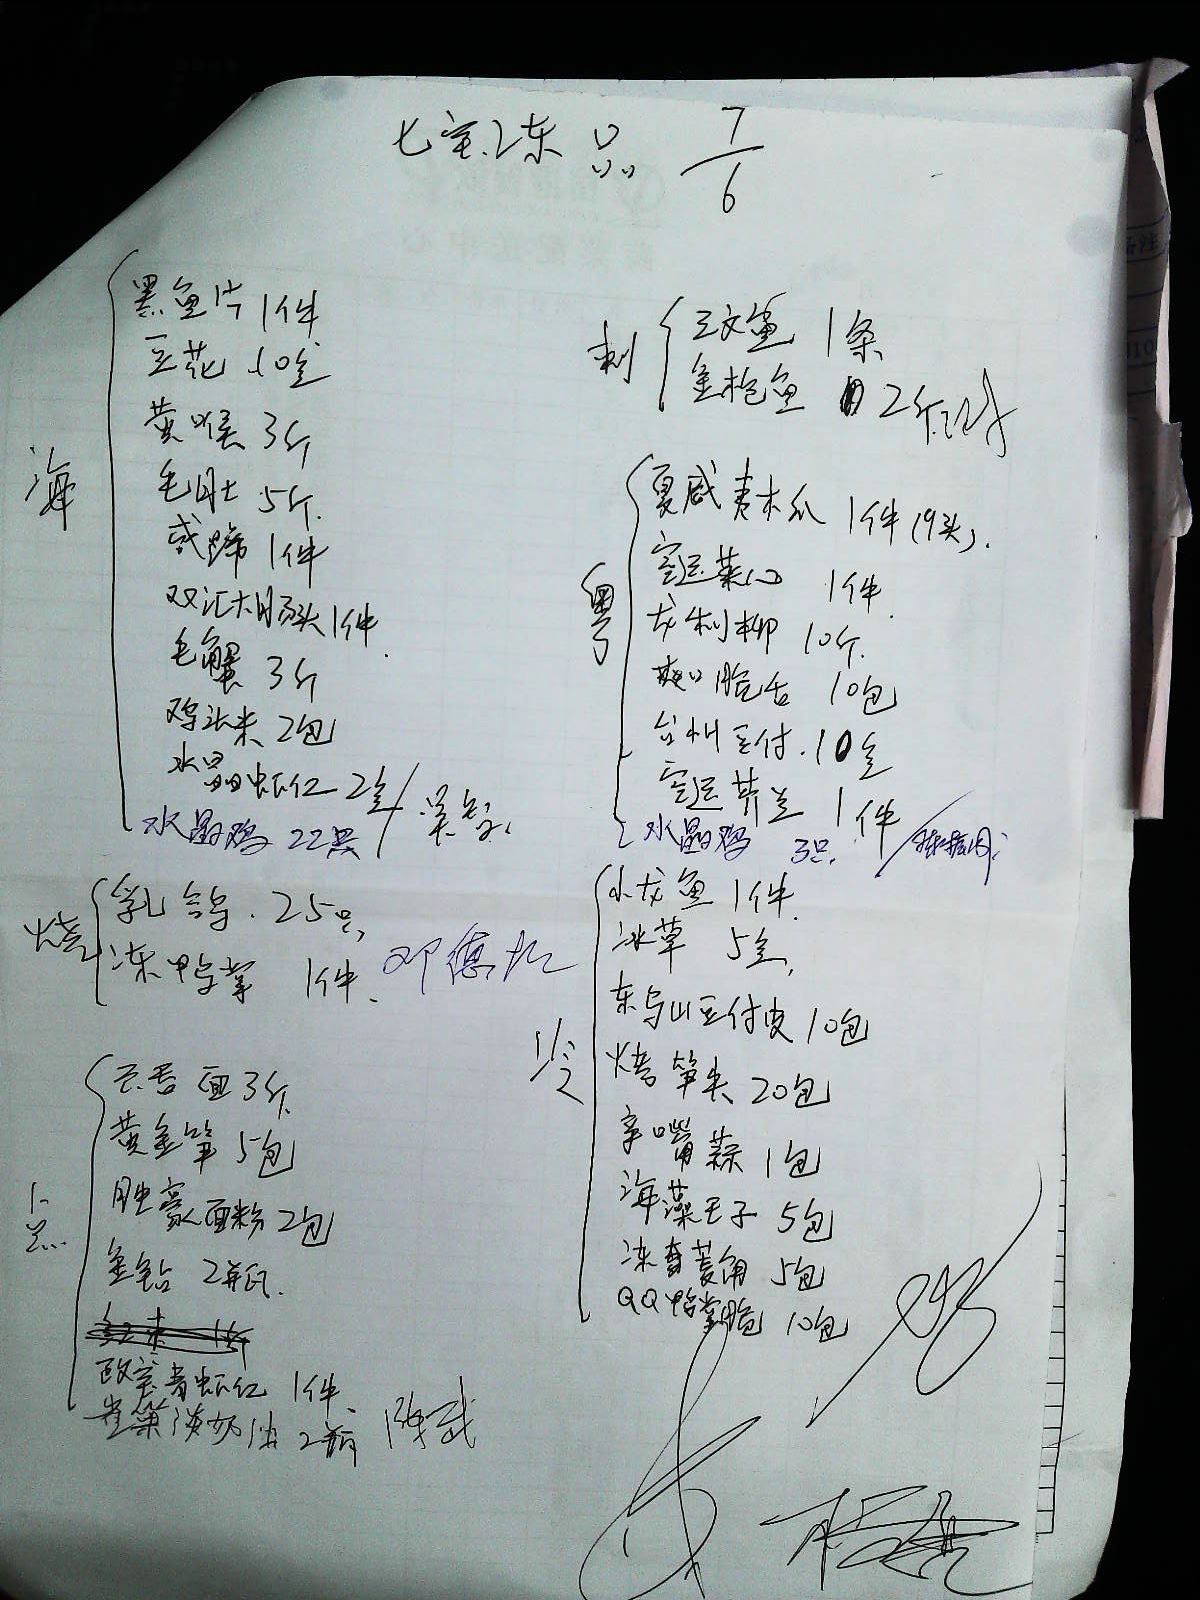 七宝冻品 7/6
海
黑鱼片 1件
豆花 10盒
黄喉 3斤
毛肚 5斤
咸蹄 1件
双汇大肠头 1件
毛蟹 3斤
鸡头米 2包
水晶虾仁 2盒
水晶鸡 22只
烧
乳鸽 25只
冻鸭掌 1件
邓德
点
面 3斤
黄金笋 5包
面粉 2包
金钻 2瓶
虾仁 1件
雀巢淡奶油 2瓶
陈武
刺
三文鱼 1条
金枪鱼 2斤
粤
夏威夷木瓜 1件(9头)
空运菜心 1件
龙利柳 10斤
爽口脆舌 10包
台州豆付 10盒
空运芥兰 1件
水晶鸡 3只
冷
小龙鱼 1件
冰草 5盒
东乌山豆付皮 10包
烤笋尖 20包
蒜 1包
海藻王子 5包
冻菱角 5包
QQ鸭掌脆 10包